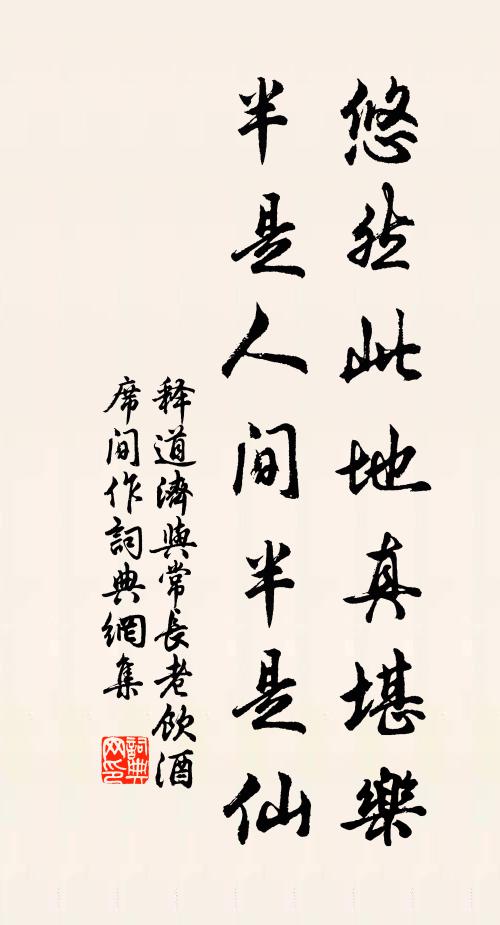 悠然此地真堪樂
半是人间半是仙
释道濟與常長老飲酒
席间作詞典網集
詞典
网印